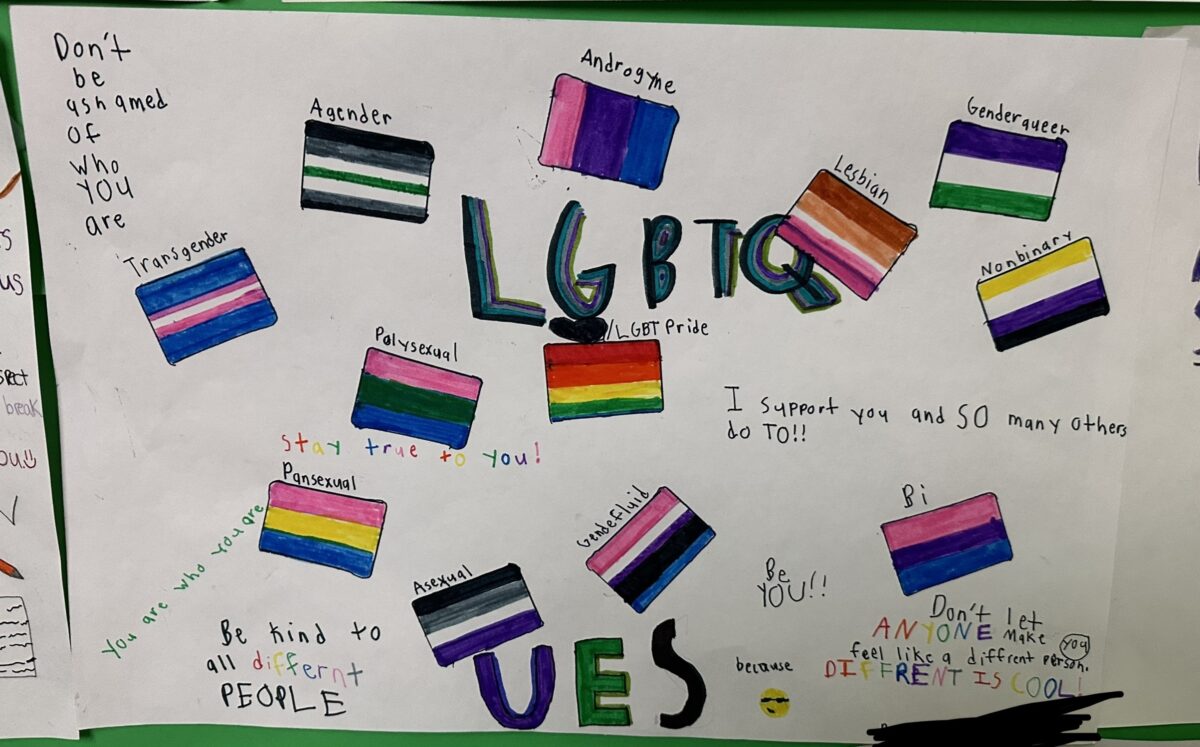 Don't
be
ashamed
of
who
YOU
are
Agender
Androgyne
Genderqueer
Lesbian
Transgender
Nonbinary
LGBTQ
/LGBT Pride
Polysexual
I support you and SO many others
do TO!!
Stay true to you!
Pansexual
You are who you are
Gendefluid
Bi
Asexual
Be
YOU!!
Be kind to
all differnt
PEOPLE
UES
Don't let
ANYONE make you
feel like a diffrent person.
because DIFFRENT IS COOL!
s
us
spect
break
ou